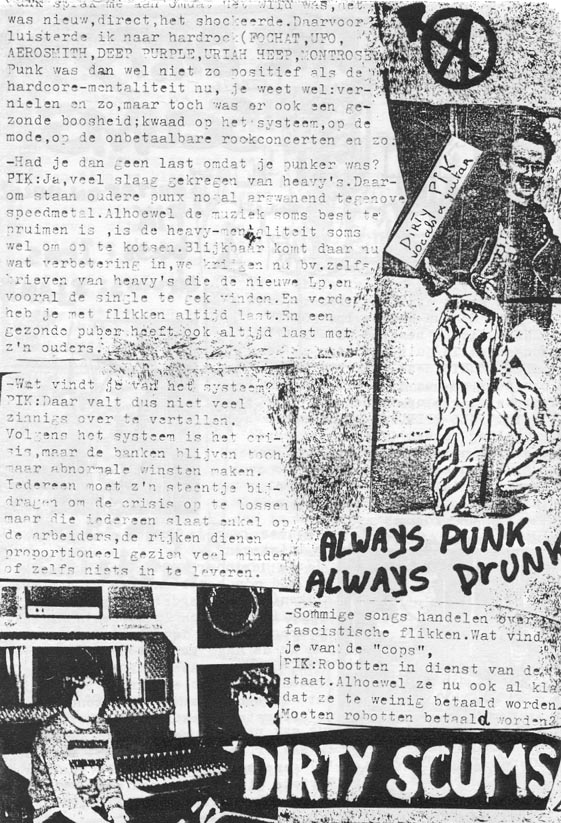 Punk sprak me aan omdat het wild was,het
was nieuw,direct,het shockeerde.Daarvoor
luisterde ik naar hardrock(FOGHAT,UFO,
AEROSMITH,DEEP PURPLE,URIAH HEEP,MONTROSE
Punk was dan wel niet zo positief als de
hardcore-mentaliteit nu, je weet wel:ver-
nielen en zo,maar toch was er ook een ge-
zonde boosheid;kwaad op het systeem,op de
mode,op de onbetaalbare rockconcerten en zo.
-Had je dan geen last omdat je punker was?
PIK:Ja,veel slaag gekregen van heavy's.Daar-
om staan oudere punx nogal argwanend tegenove
speedmetal.Alhoewel de muziek soms best te
pruimen is ,is de heavy-mentaliteit soms
wel om op te kotsen.Blijkbaar komt daar nu
wat verbetering in,we krijgen nu bv.zelfs
brieven van heavy's die de nieuwe Lp,en
vooral de single te gek vinden.En verder
heb je met flikken altijd last.En een
gezonde puber heeft ook altijd last met
z'n ouders.
DIRTY PIK
vocals & guitar
-Wat vindt je van het systeem?
PIK:Daar valt dus niet veel
zinnigs over te vertellen.
Volgens het systeem is het cri-
sis,maar de banken blijven toch
maar abnormale winsten maken.
Iedereen moet z'n steentje bij-
dragen om de crisis op te lossen
maar die iedereen slaat enkel op
de arbeiders,de rijken dienen
proportioneel gezien veel minder
of zelfs niets in te leveren.
ALWAYS PUNK
ALWAYS DRUNK
-Sommige songs handelen over
fascistische flikken.Wat vind
je van de "cops",
PIK:Robotten in dienst van de
staat.Alhoewel ze nu ook al kla
dat ze te weinig betaald worden.
Moeten robotten betaald worden?
DIRTY SCUMS